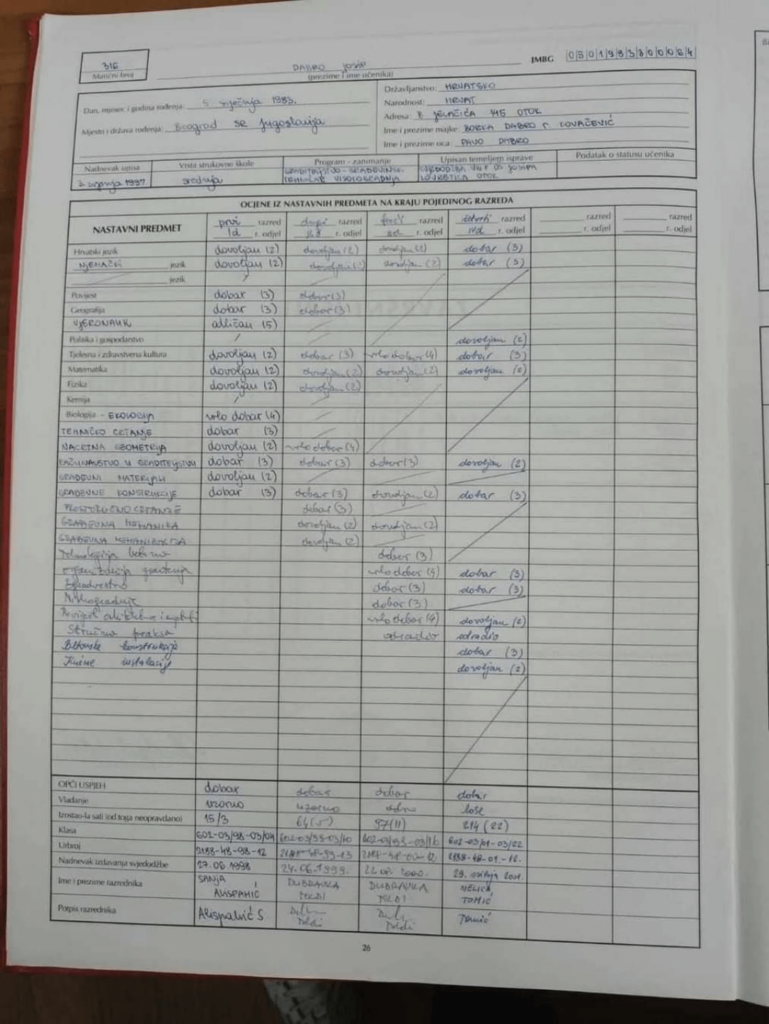 316
Matični broj
DABRO JOSIP
(prezime i ime učenika)
JMBG
Dan, mjesec i godina rođenja: 5. siječnja 1983.
Mjesto i država rođenja: Beograd SR Jugoslavija
Državljanstvo: HRVATSKO
Narodnost: HRVAT
Adresa: B. JELAČIĆA OTOK
Ime i prezime majke: DABRO r. KOVAČEVIĆ
Ime i prezime oca: PAVO DABRO
Nadnevak upisa Vrsta strukovne škole Program - zanimanje Upisan temeljem isprave Podatak o statusu učenika
srpnja 1997 srednja TEHNIČAR VISOKOGRADNJA OTOK
OCJENE IZ NASTAVNIH PREDMETA NA KRAJU POJEDINOG RAZREDA
NASTAVNI PREDMET prvi razred drugi razred treći razred četvrti razred razred razred
1d r. odjel r. odjel r. odjel r. odjel r. odjel r. odjel
Hrvatski jezik dovoljan (2) dovoljan (2) dovoljan (2) dobar (3)
NJEMAČKI jezik dovoljan (2) dovoljan (2) dovoljan (2) dobar (3)
jezik /
Povijest dobar (3) dobar (3)
Geografija dobar (3) dobar (3)
VJERONAUK odličan (5)
Politika i gospodarstvo / dovoljan (2)
Tjelesna i zdravstvena kultura dovoljan (2) dobar (3) vrlo dobar (4) dobar (3)
Matematika dovoljan (2) dovoljan (2) dovoljan (2) dovoljan (2)
Fizika dovoljan (2) dovoljan (2)
Kemija /
Biologija - EKOLOGIJA vrlo dobar (4)
TEHNIČKO CRTANJE dobar (3)
NACRTNA GEOMETRIJA dovoljan (2) vrlo dobar (4)
RAČUNALSTVO U GRADITELJSTVU dobar (3) dobar (3) dobar (3) dovoljan (2)
GRAĐEVNI MATERIJALI dovoljan (2)
GRAĐEVNE KONSTRUKCIJE dobar (3) dobar (3) dovoljan (2) dobar (3)
PROSTORUČNO CRTANJE dobar (3)
GRAĐEVNA MEHANIKA dovoljan (2) dovoljan (2)
GRAĐEVNA MEHANIZACIJA dovoljan (2)
Tehnologija betona dobar (3)
organizacija građenja vrlo dobar (4) dobar (3)
dobar (3) dobar (3)
Niskogradnje dobar (3)
vrlo dobar (4) dovoljan (2)
Stručna praksa odradio odradio
Betonske konstrukcije dobar (3)
Kućne instalacije dovoljan (2)
OPĆI USPJEH dobar dobar dobar dobar
Vladanje uzorno uzorno dobro loše
Izostao-la sati (od toga neopravdano) 15/3 64(5) 57(11) 214 (22)
Klasa 602-03/98-03/04 602-03/99-03/10 602-03/01-03/22
Urbroj 2188-48-98-12 2188-48-01-12.
Nadnevak izdavanja svjedodžbe 17.06 1998 24.06.1999. 2000. 28. svibnja 2001.
Ime i prezime razrednika SANJA DUBRAVKA DUBRAVKA TOMIĆ
Potpis razrednika Tomić
26